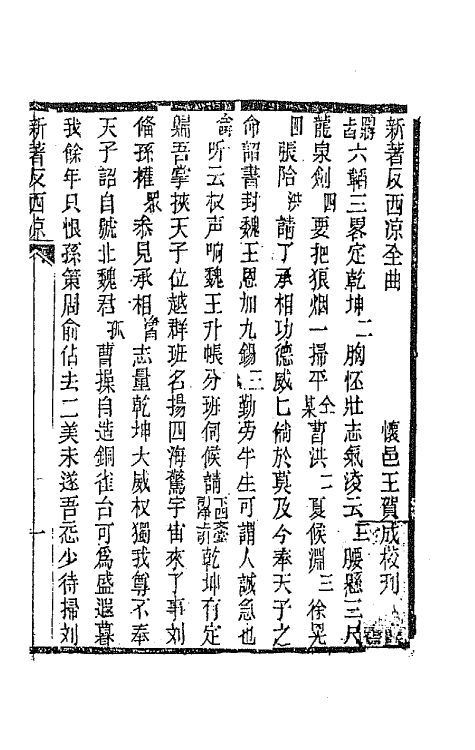 新著反西凉全曲　懷邑王賀成校刋
六韜三畧定乾坤二胸怀壯志氣凌云三腰懸三尺
龍泉劍四要把狼烟一掃平仝某曹洪二夏候淵三徐晃
四張郃洪請了承相功德威匕倘於莫及今奉天子之
命詔書封魏王恩加九錫二勤劳半生可謂人誠急也
听云板声响魏王升帳分班伺候請下西臺乾坤有定
歸吾掌挾天子位越群班名揚四海驚宇宙來了事刘
俻孫權眾叅見承相曹志量乾坤大威权獨我尊不奉
天子詔自號北魏君孤曹操自造銅雀台可為盛遐暮
我餘年只恨孫策周俞佔去二美未遂吾忎少待掃刘
新著反西凉　一